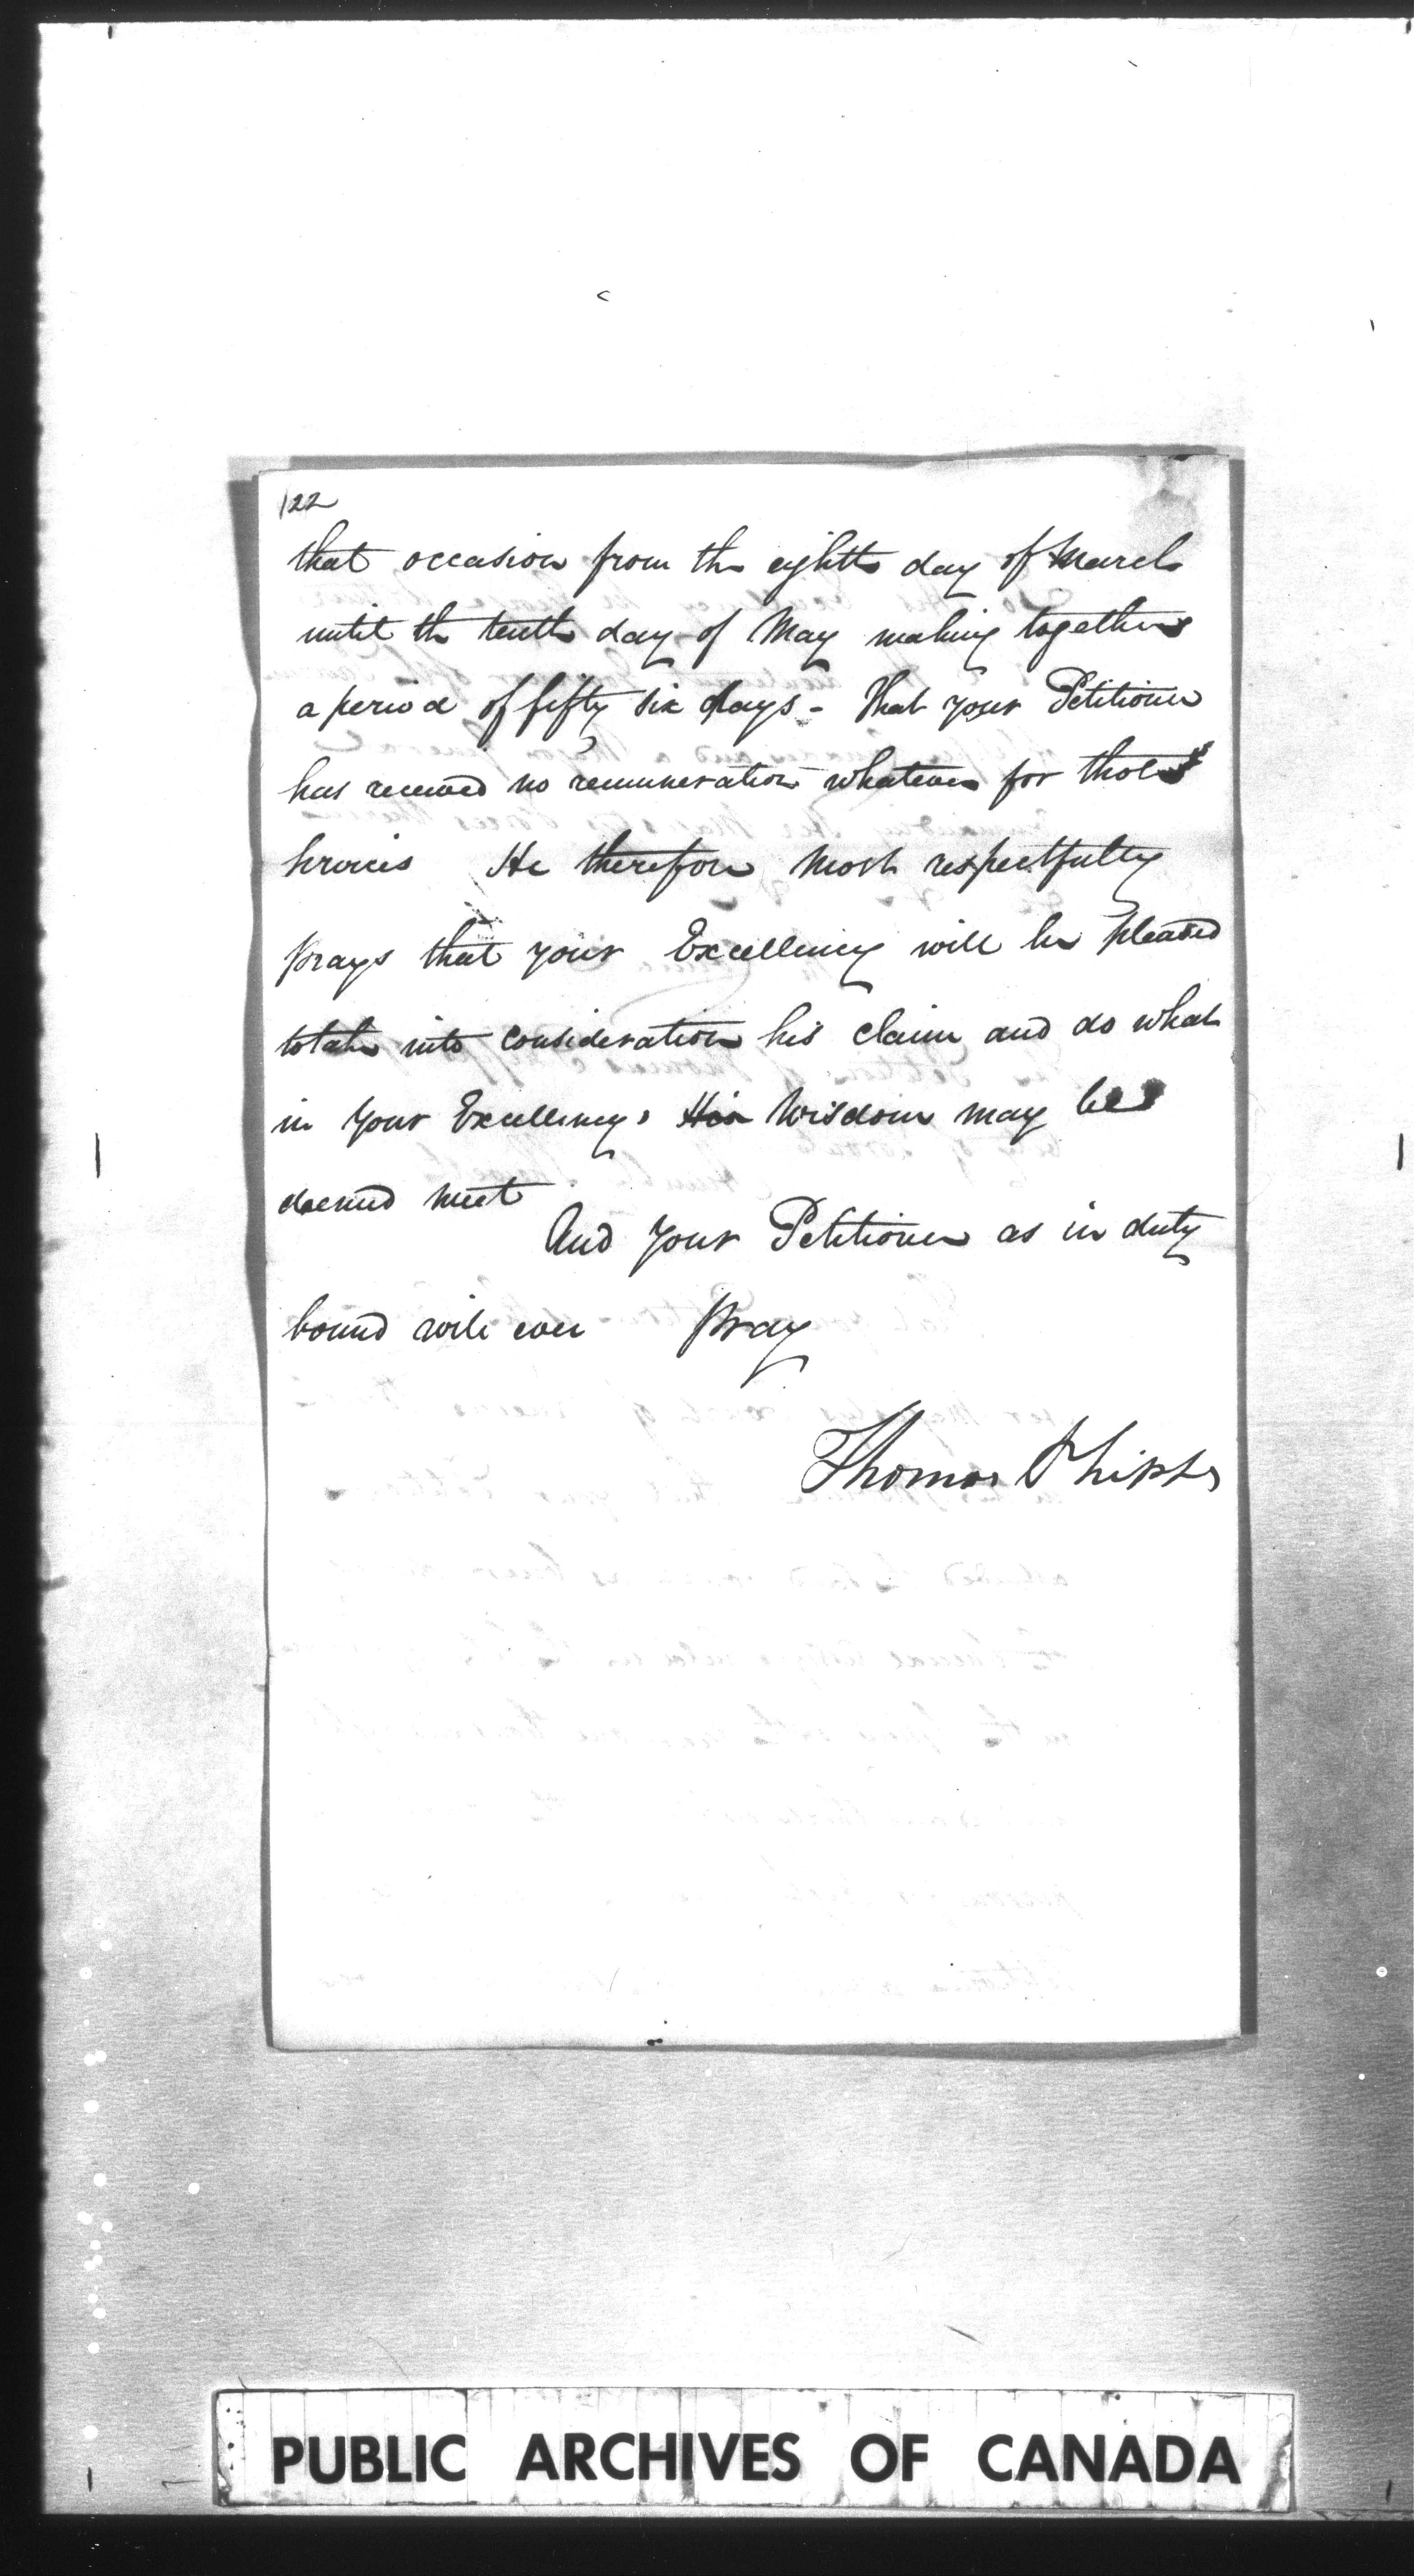 122
that occasion from the eighth day of March
until the tenth day of May making together
a period of fifty six days - That your Petitioner
has received no remuneration whatever for those
services He therefore most respectfully
prays that your Excellency will be pleased
to take into consideration his claim and do what
in your Excellency's His Wisdom may be
deemed meet
And your Petitioner as in duty
bound will ever pray
Thomas Phipps
PUBLIC ARCHIVES OF CANADA